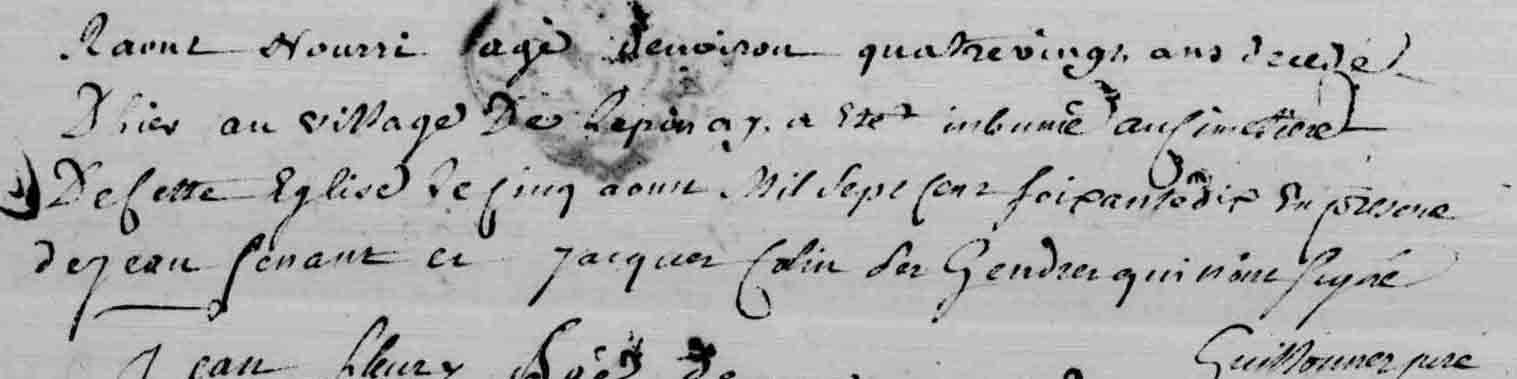 Raoul Nourri agé denviron quatrevingt ans decedé
D'hier au village De Lepinay a eté inhumé au Cimetiere
De Cette Eglise Le Cinq aoust Mil Sept Cent soixante dix En presence
de jean Senant et Jacques Colin ses Gendres qui n'ont signé
Jean fleury
Guillonner